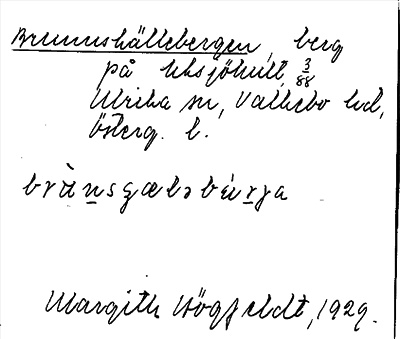 Brunnshällebergen, berg
på Uksjöhult, 3/88
Ulrika sn, Valkebo hd,
Österg. l.
Margith Högfeldt, 1929.